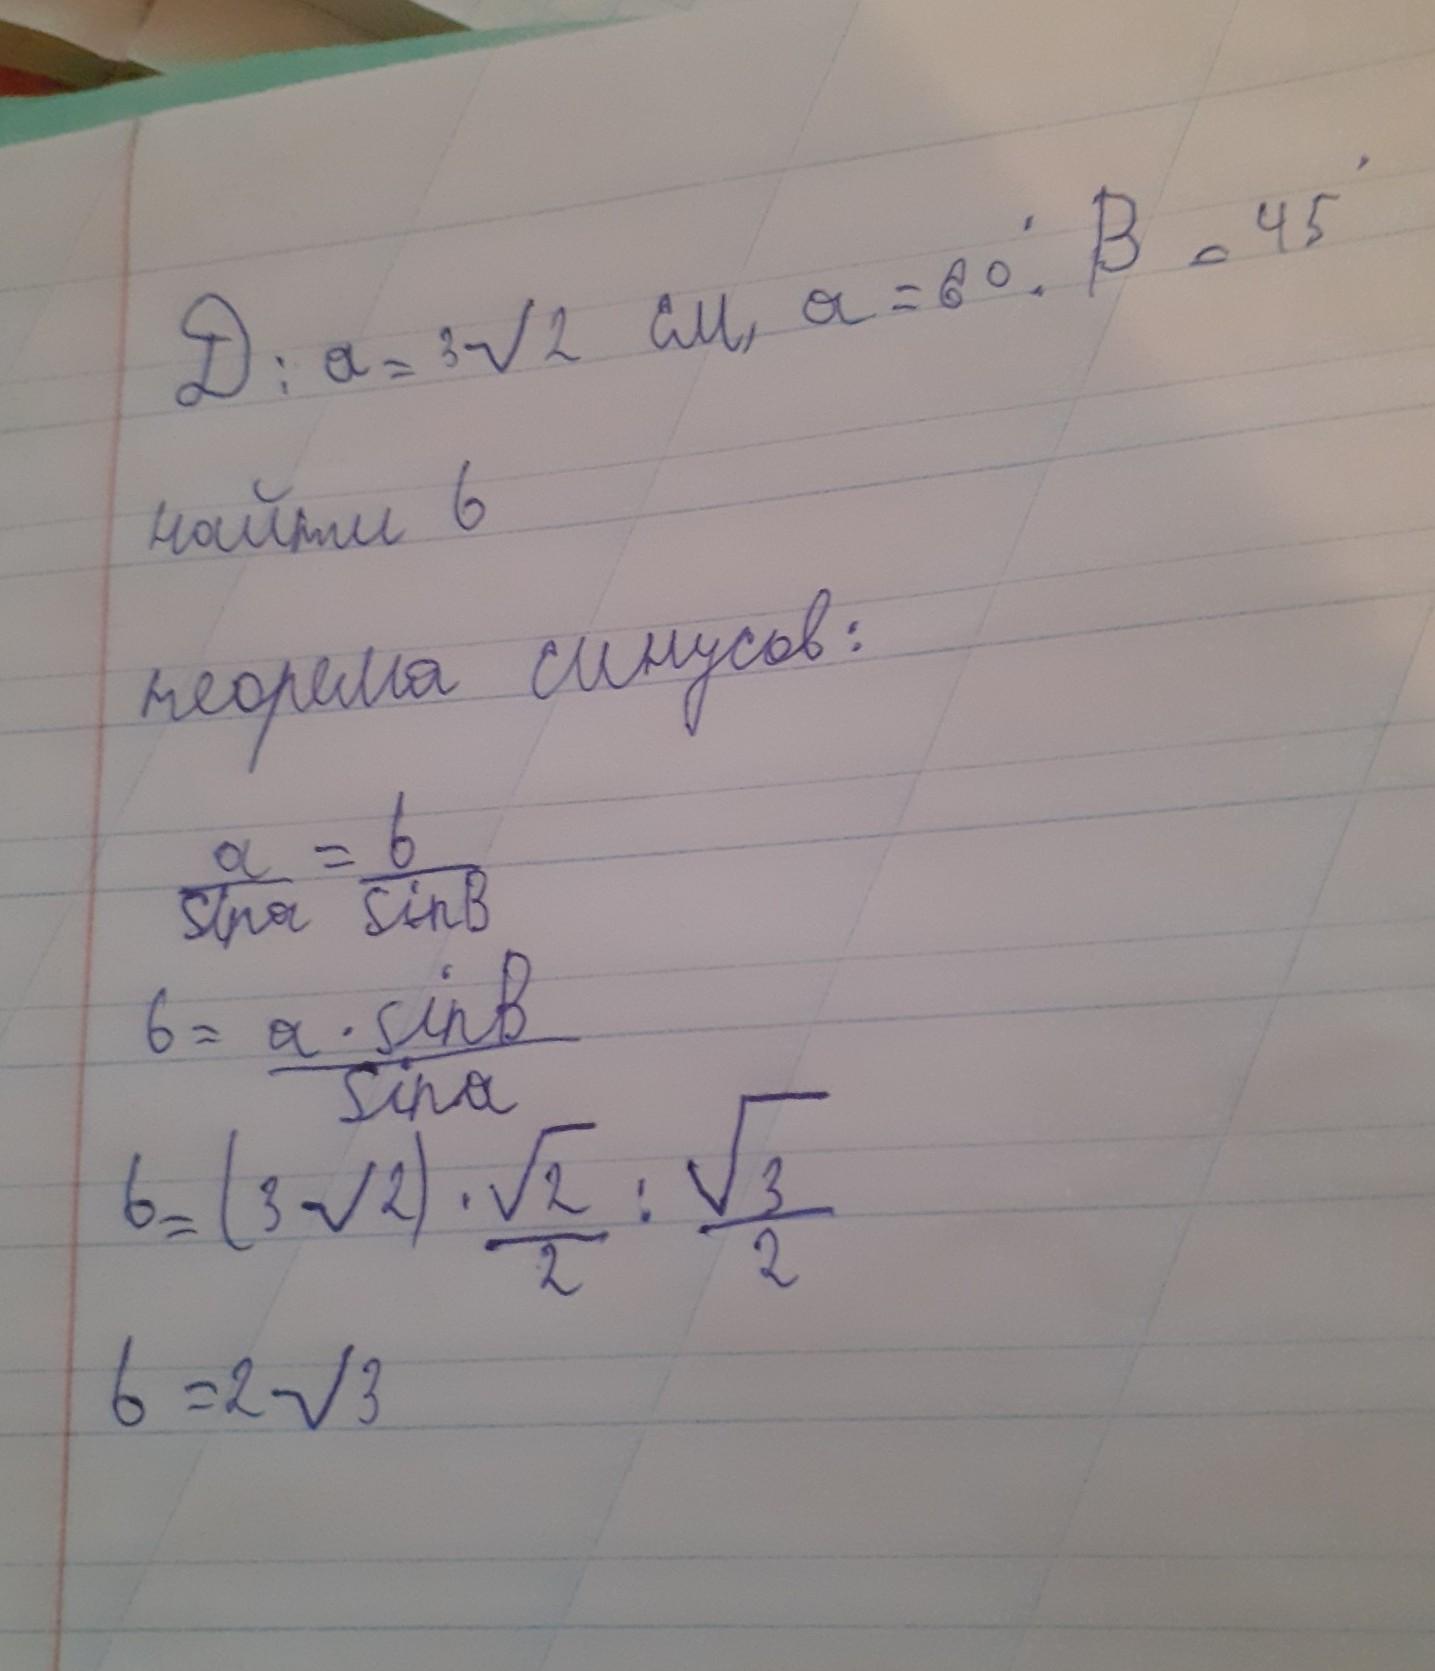 D: a = 3√2 см, a = 60°. B = 45°
найти b
теорема синусов:
a/sina = b/sinB
b = a · sinB/sina
b = (3√2) · √2/2 : √3/2
b = 2√3